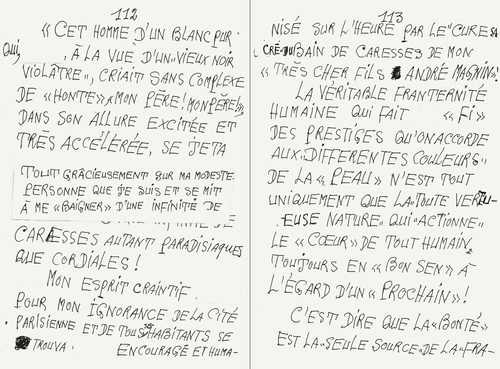 112
« CET HOMME D'UN BLANC PUR
QUI, À LA VUE D'UN «VIEUX NOIR
VIOLÂTRE», CRIAIT SANS COMPLEXE
DE «HONTE» «MON PÈRE! MON PÈRE!»,
DANS SON ALLURE EXCITÉE ET
TRÈS ACCÉLÉRÉE, SE JETA
TOUT GRÂCIEUSEMENT SUR MA MODESTE
PERSONNE QUE JE SUIS ET SE MIT
À ME «BAIGNER» D'UNE INFINITÉ DE
CARESSES AUTANT PARADISIAQUES
QUE CORDIALES!
MON ESPRIT CRAINTIF
POUR MON IGNORANCE DE LA CITÉ
PARISIENNE ET DE TOUS SES HABITANTS SE
TROUVA ENCOURAGÉ ET HUMA-
113
NISÉ SUR L'HEURE PAR LE "CURE SA-
CRÉ" DU BAIN DE CARESSES DE MON
«TRÈS CHER FILS ANDRÉ MAGNIN»!
LA VÉRITABLE FRANTERNITÉ
HUMAINE QUI FAIT «FI»
DES PRESTIGES QU'ON ACCORDE
AUX «DIFFÉRENTES COULEURS»
DE LA «PEAU» N'EST TOUT
UNIQUEMENT QUE LA «TOUTE VERTU-
EUSE NATURE» QUI «ACTIONNE»
LE «CŒUR» DE TOUT HUMAIN,
TOUJOURS EN «BON SEN» À
L'ÉGARD D'UN «PROCHAIN»!
C'EST DIRE QUE LA «BONTÉ»
EST LA «SEULE SOURCE» DE LA «FRA-